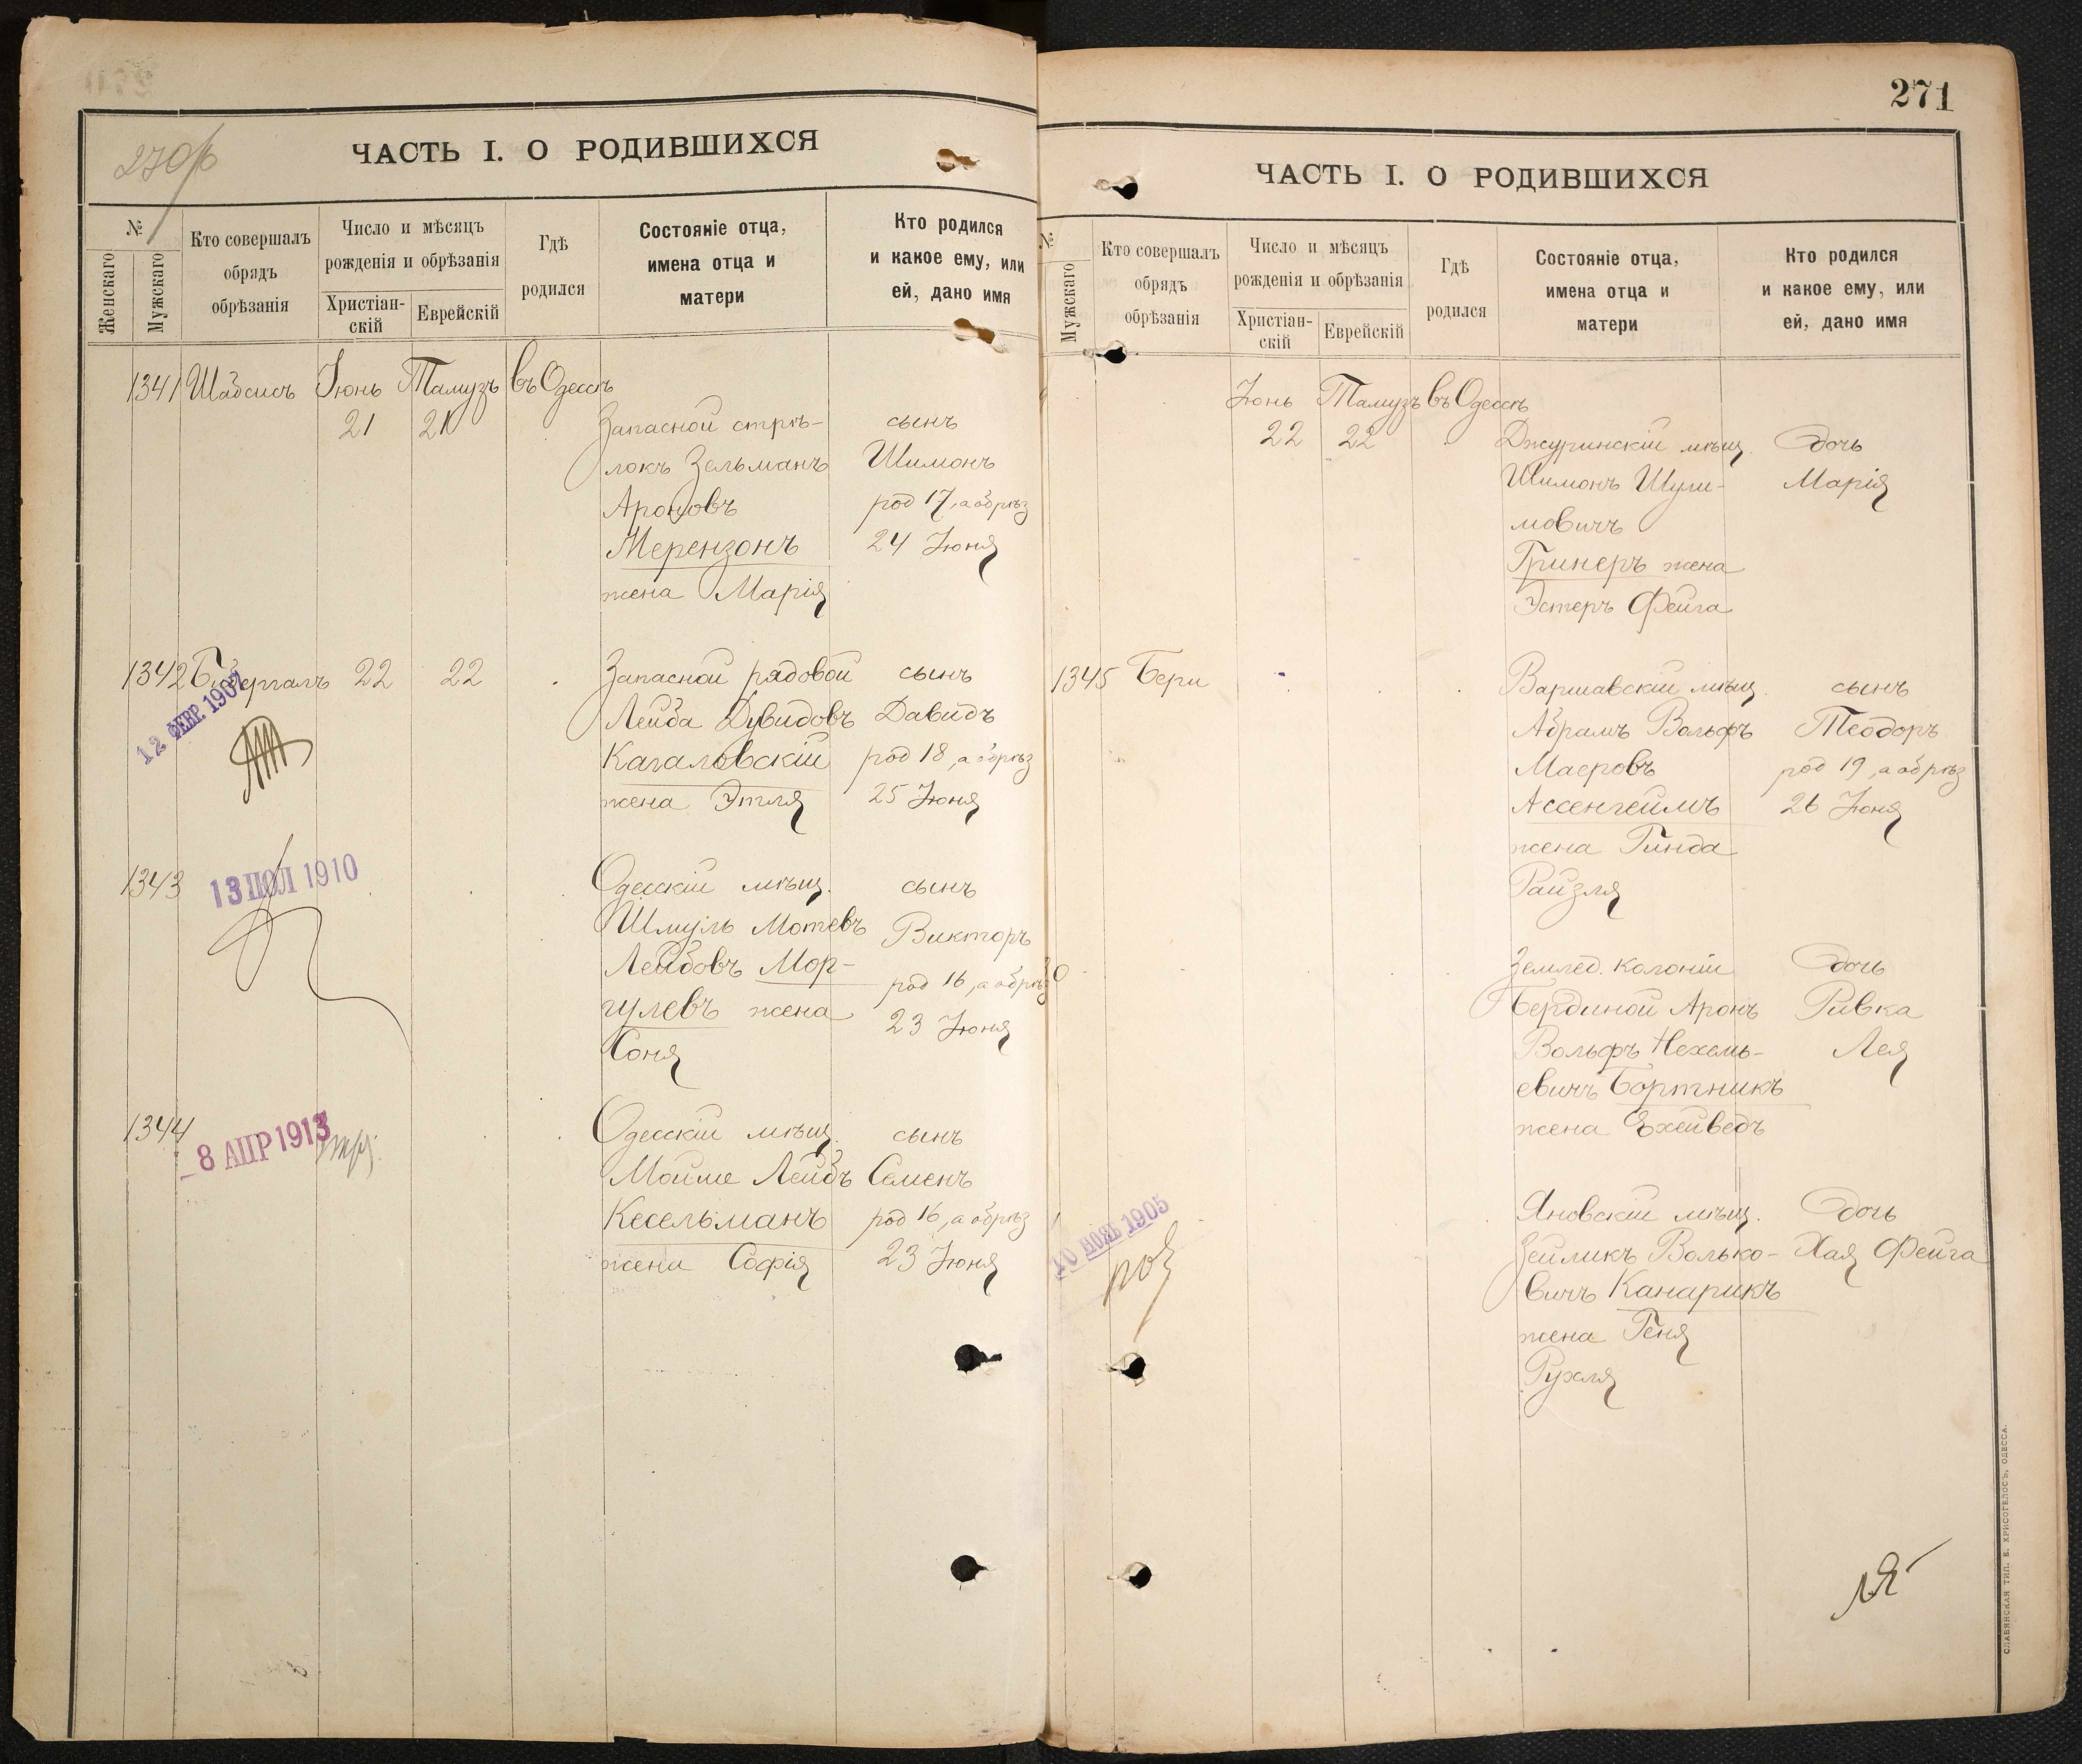 270 об
ЧАСТЬ I. О РОДИВШИХСЯ
№
Женскаго
Мужскаго
Кто совершалъ
обрядъ
обрѣзанія
Число и мѣсяцъ
рожденія и обрѣзанія
Христіан-
скій
Еврейскій
Гдѣ
родился
Состояніе отца,
имена отца и
матери
Кто родился
и какое ему, или
ей, дано имя
1341 Шабсисъ Іюнь Тамузъ въ Одессѣ
21 21 Запасной стрѣ- сынъ
локъ Зельманъ Шимонъ
Ароновъ род 17, а обрѣз
Меренzонъ 24 Іюня
жена Марія
1342 Бибергалъ 22 22 Запасной рядовой сынъ
12 ФЕВР. 1907
Лейба Дувидовъ Давидъ
Кагаловскій род 18, а обрѣз
жена Этля 25 Іюня
1343 13 ІЮЛ 1910 Одесскій мѣщ. сынъ
Шмуль Мотевъ Викторъ
Лейбовъ Мор- род 16, а обрѣз
гулевъ жена 23 Іюня
Соня
1344 Одесскій мѣщ. сынъ
8 АПР 1913
Мойше Лейбъ Семенъ
Кесельманъ род 16, а обрѣз
жена Софія 23 Іюня
271
ЧАСТЬ I. О РОДИВШИХСЯ
№
Мужскаго
Кто совершалъ
обрядъ
обрѣзанія
Число и мѣсяцъ
рожденія и обрѣзанія
Христіан-
скій
Еврейскій
Гдѣ
родился
Состояніе отца,
имена отца и
матери
Кто родился
и какое ему, или
ей, дано имя
Іюнь Тамузъ въ Одессѣ
22 22 Джуринскій мѣщ. дочь
Шимонъ Шули- Марія
мовичъ
Гринеръ жена
Эстеръ Фейга
1345 Бери Варшавскій мѣщ. сынъ
Абрамъ Вольфъ Теодоръ
Маеровъ род 19, а обрѣз
Ассенгеймъ 26 Іюня
жена Гинда
Райзля
Землед. колоніи дочь
Аронъ Ривка
Вольфъ Нехемь- Лея
евичъ Бортникъ
жена Ехейведъ
Яновскій мѣщ. дочь
10 НОЯБ 1905
Зейликъ Волько- Хая Фейга
вичъ Канарикъ
жена Геня
Рухля
СЛАВЯНСКАЯ ТИП. Е. ХРИСОГЕЛОСЪ, ОДЕССА.